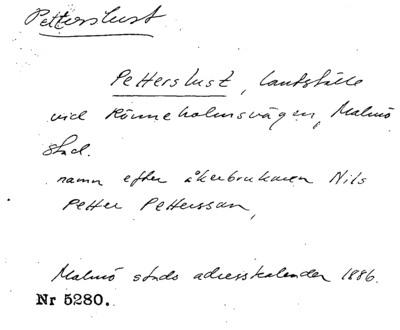 Petterslust
Petterslust, lantställe
vid Rönneholmsvägen, Malmö
stad.
namn efter åkerbrukaren Nils
Petter Pettersson,
Malmö stads adresskalender 1886.
Nr 5280.